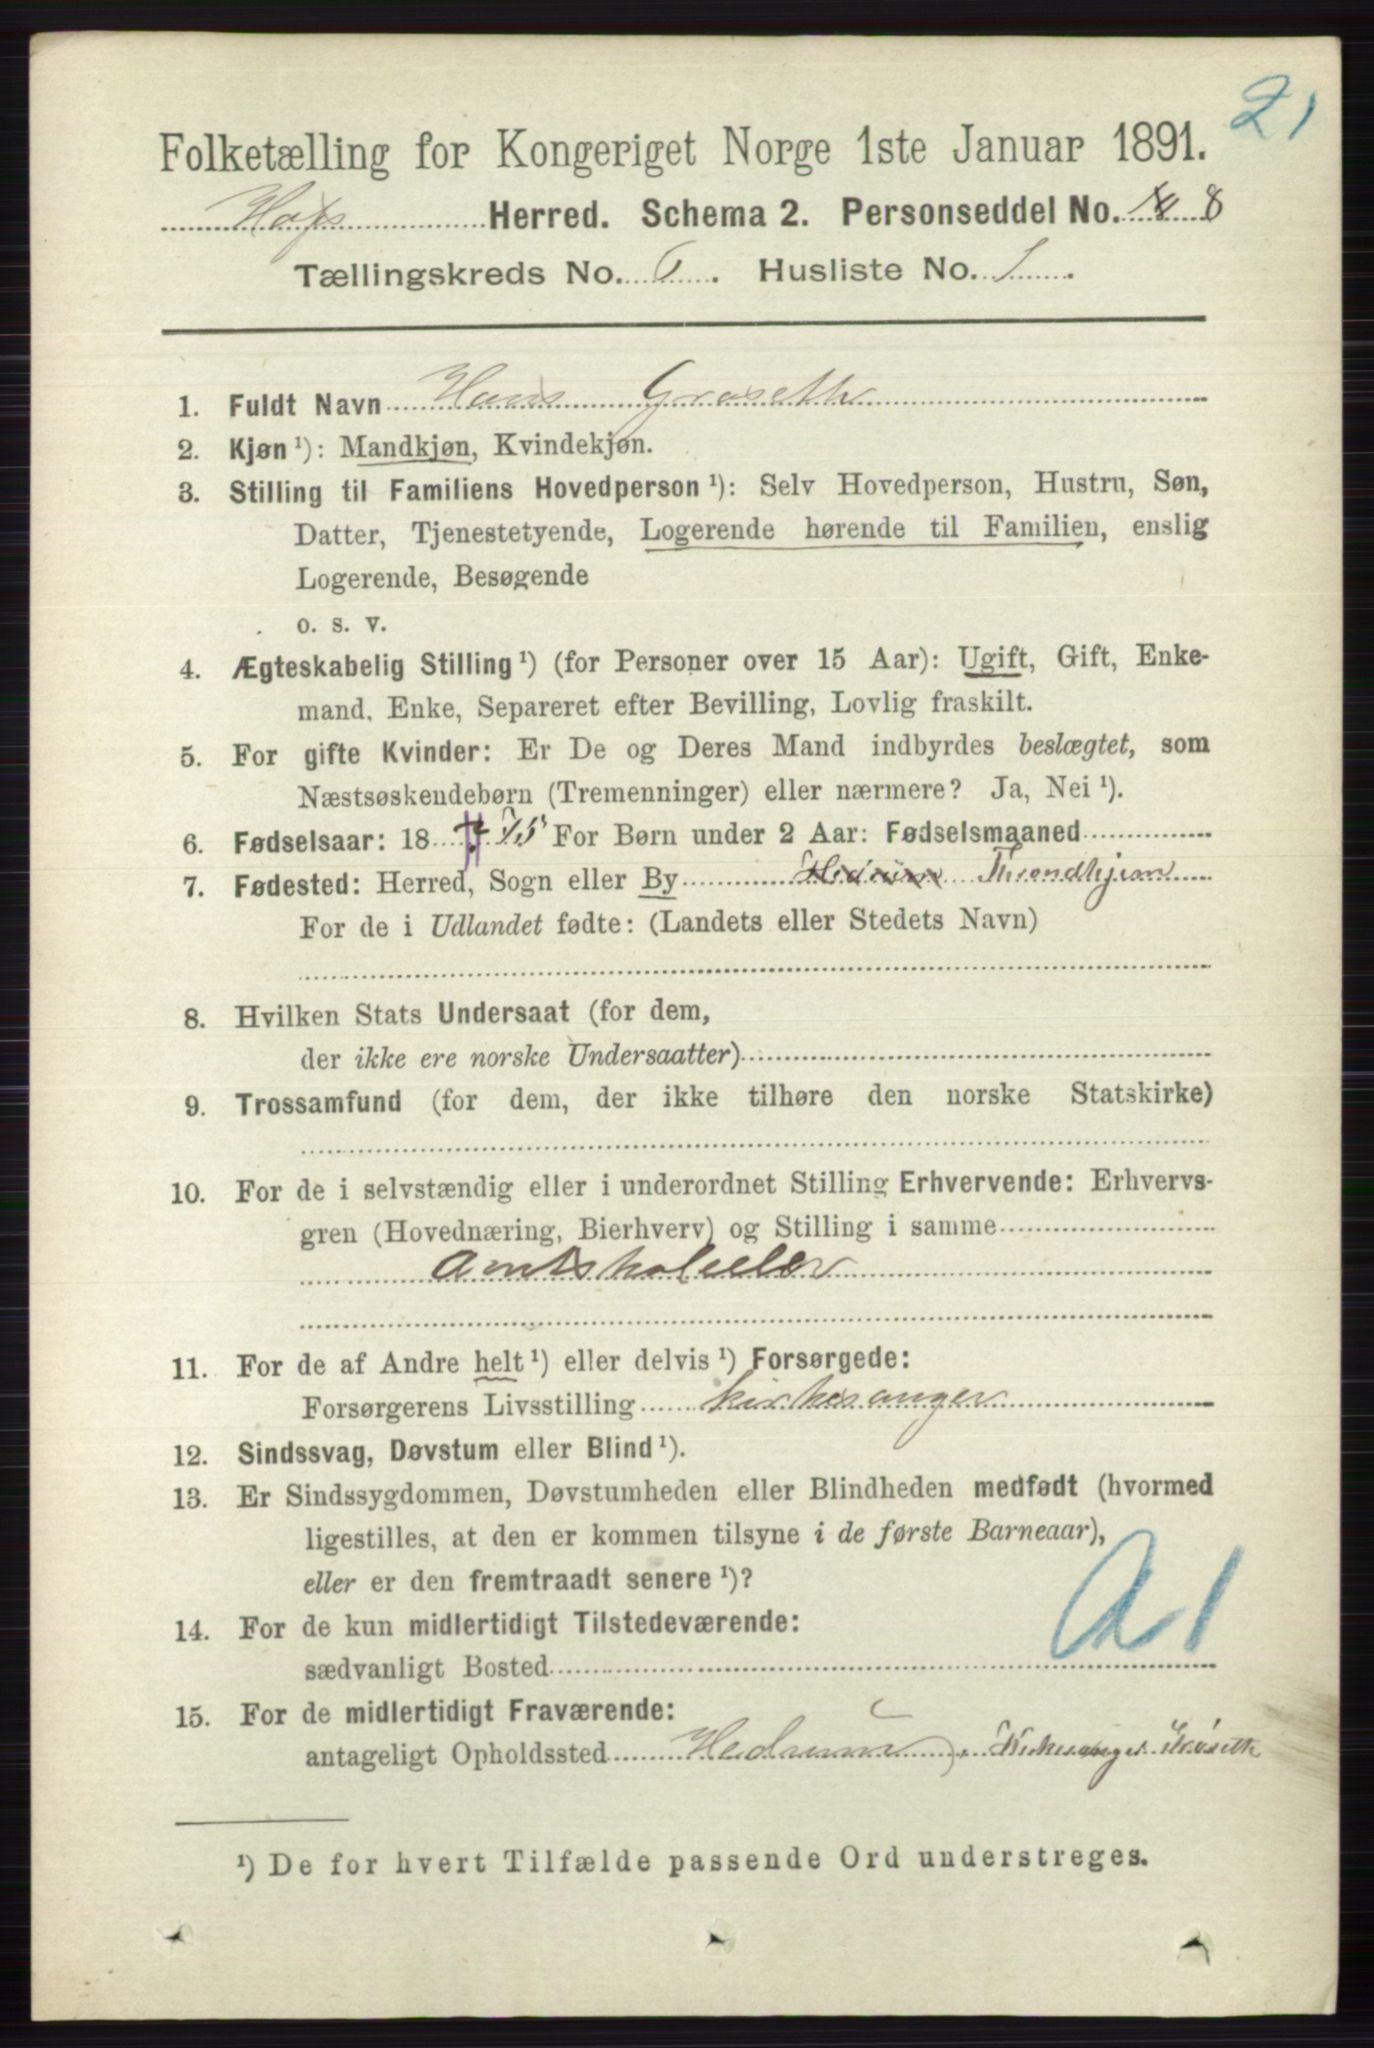 21
Folketælling for Kongeriget Norge 1ste Januar 1891.
Hofs Herred. Schema 2. Personseddel No. 8
Tællingskreds No. 6. Husliste No. 1.
1. Fuldt Navn Hans Grøseth
2. Kjøn ¹): Mandkjøn, Kvindekjøn.
3. Stilling til Familiens Hovedperson ¹): Selv Hovedperson, Hustru, Søn,
Datter, Tjenestetyende, Logerende hørende til Familien, enslig
Logerende, Besøgende
o. s. v.
4. Ægteskabelig Stilling ¹) (for Personer over 15 Aar): Ugift, Gift, Enke-
mand, Enke, Separeret efter Bevilling, Lovlig fraskilt.
5. For gifte Kvinder: Er De og Deres Mand indbyrdes beslægtet, som
Næstsøskendebørn (Tremenninger) eller nærmere? Ja, Nei ¹).
6. Fødselsaar: 18 75 For Børn under 2 Aar: Fødselsmaaned
7. Fødested: Herred, Sogn eller By Hedrum Throndhjem
For de i Udlandet fødte: (Landets eller Stedets Navn)
8. Hvilken Stats Undersaat (for dem,
der ikke ere norske Undersaatter)
9. Trossamfund (for dem, der ikke tilhøre den norske Statskirke)
10. For de i selvstændig eller i underordnet Stilling Erhvervende: Erhvervs-
gren (Hovednæring, Bierhverv) og Stilling i samme
Amtskoleelev
11. For de af Andre helt ¹) eller delvis ¹) Forsørgede:
Forsørgerens Livsstilling kirkesanger
12. Sindssvag, Døvstum eller Blind ¹).
13. Er Sindssygdommen, Døvstumheden eller Blindheden medfødt (hvormed
ligestilles, at den er kommen tilsyne i de første Barneaar),
eller er den fremtraadt senere ¹)?
14. For de kun midlertidigt Tilstedeværende:
sædvanligt Bosted
a 1
15. For de midlertidigt Fraværende:
antageligt Opholdssted Hedrum, Kirkesanger Grøseth
¹) De for hvert Tilfælde passende Ord understreges.